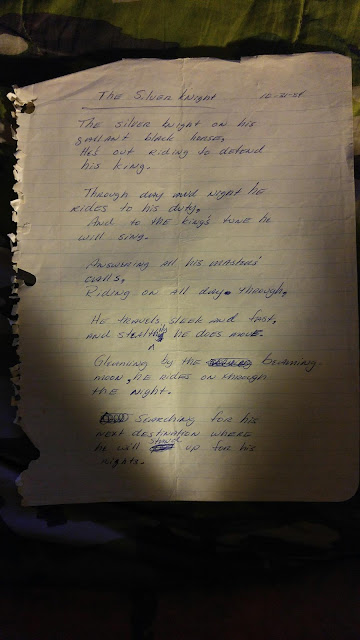 The Silver Knight 10-31-84
The silver knight on his
gallant black horse,
He's out riding to defend
his king.
Through day and night he
rides to his duty,
And to the king's tune he
will sing.
Answering all his masters'
calls,
Riding on all day through,
He travels sleek and fast,
and stealthily he does move.
Gleaming by the beaming
moon, he rides on through
the night.
Searching for his
next destination where
he will stand up for his
rights.